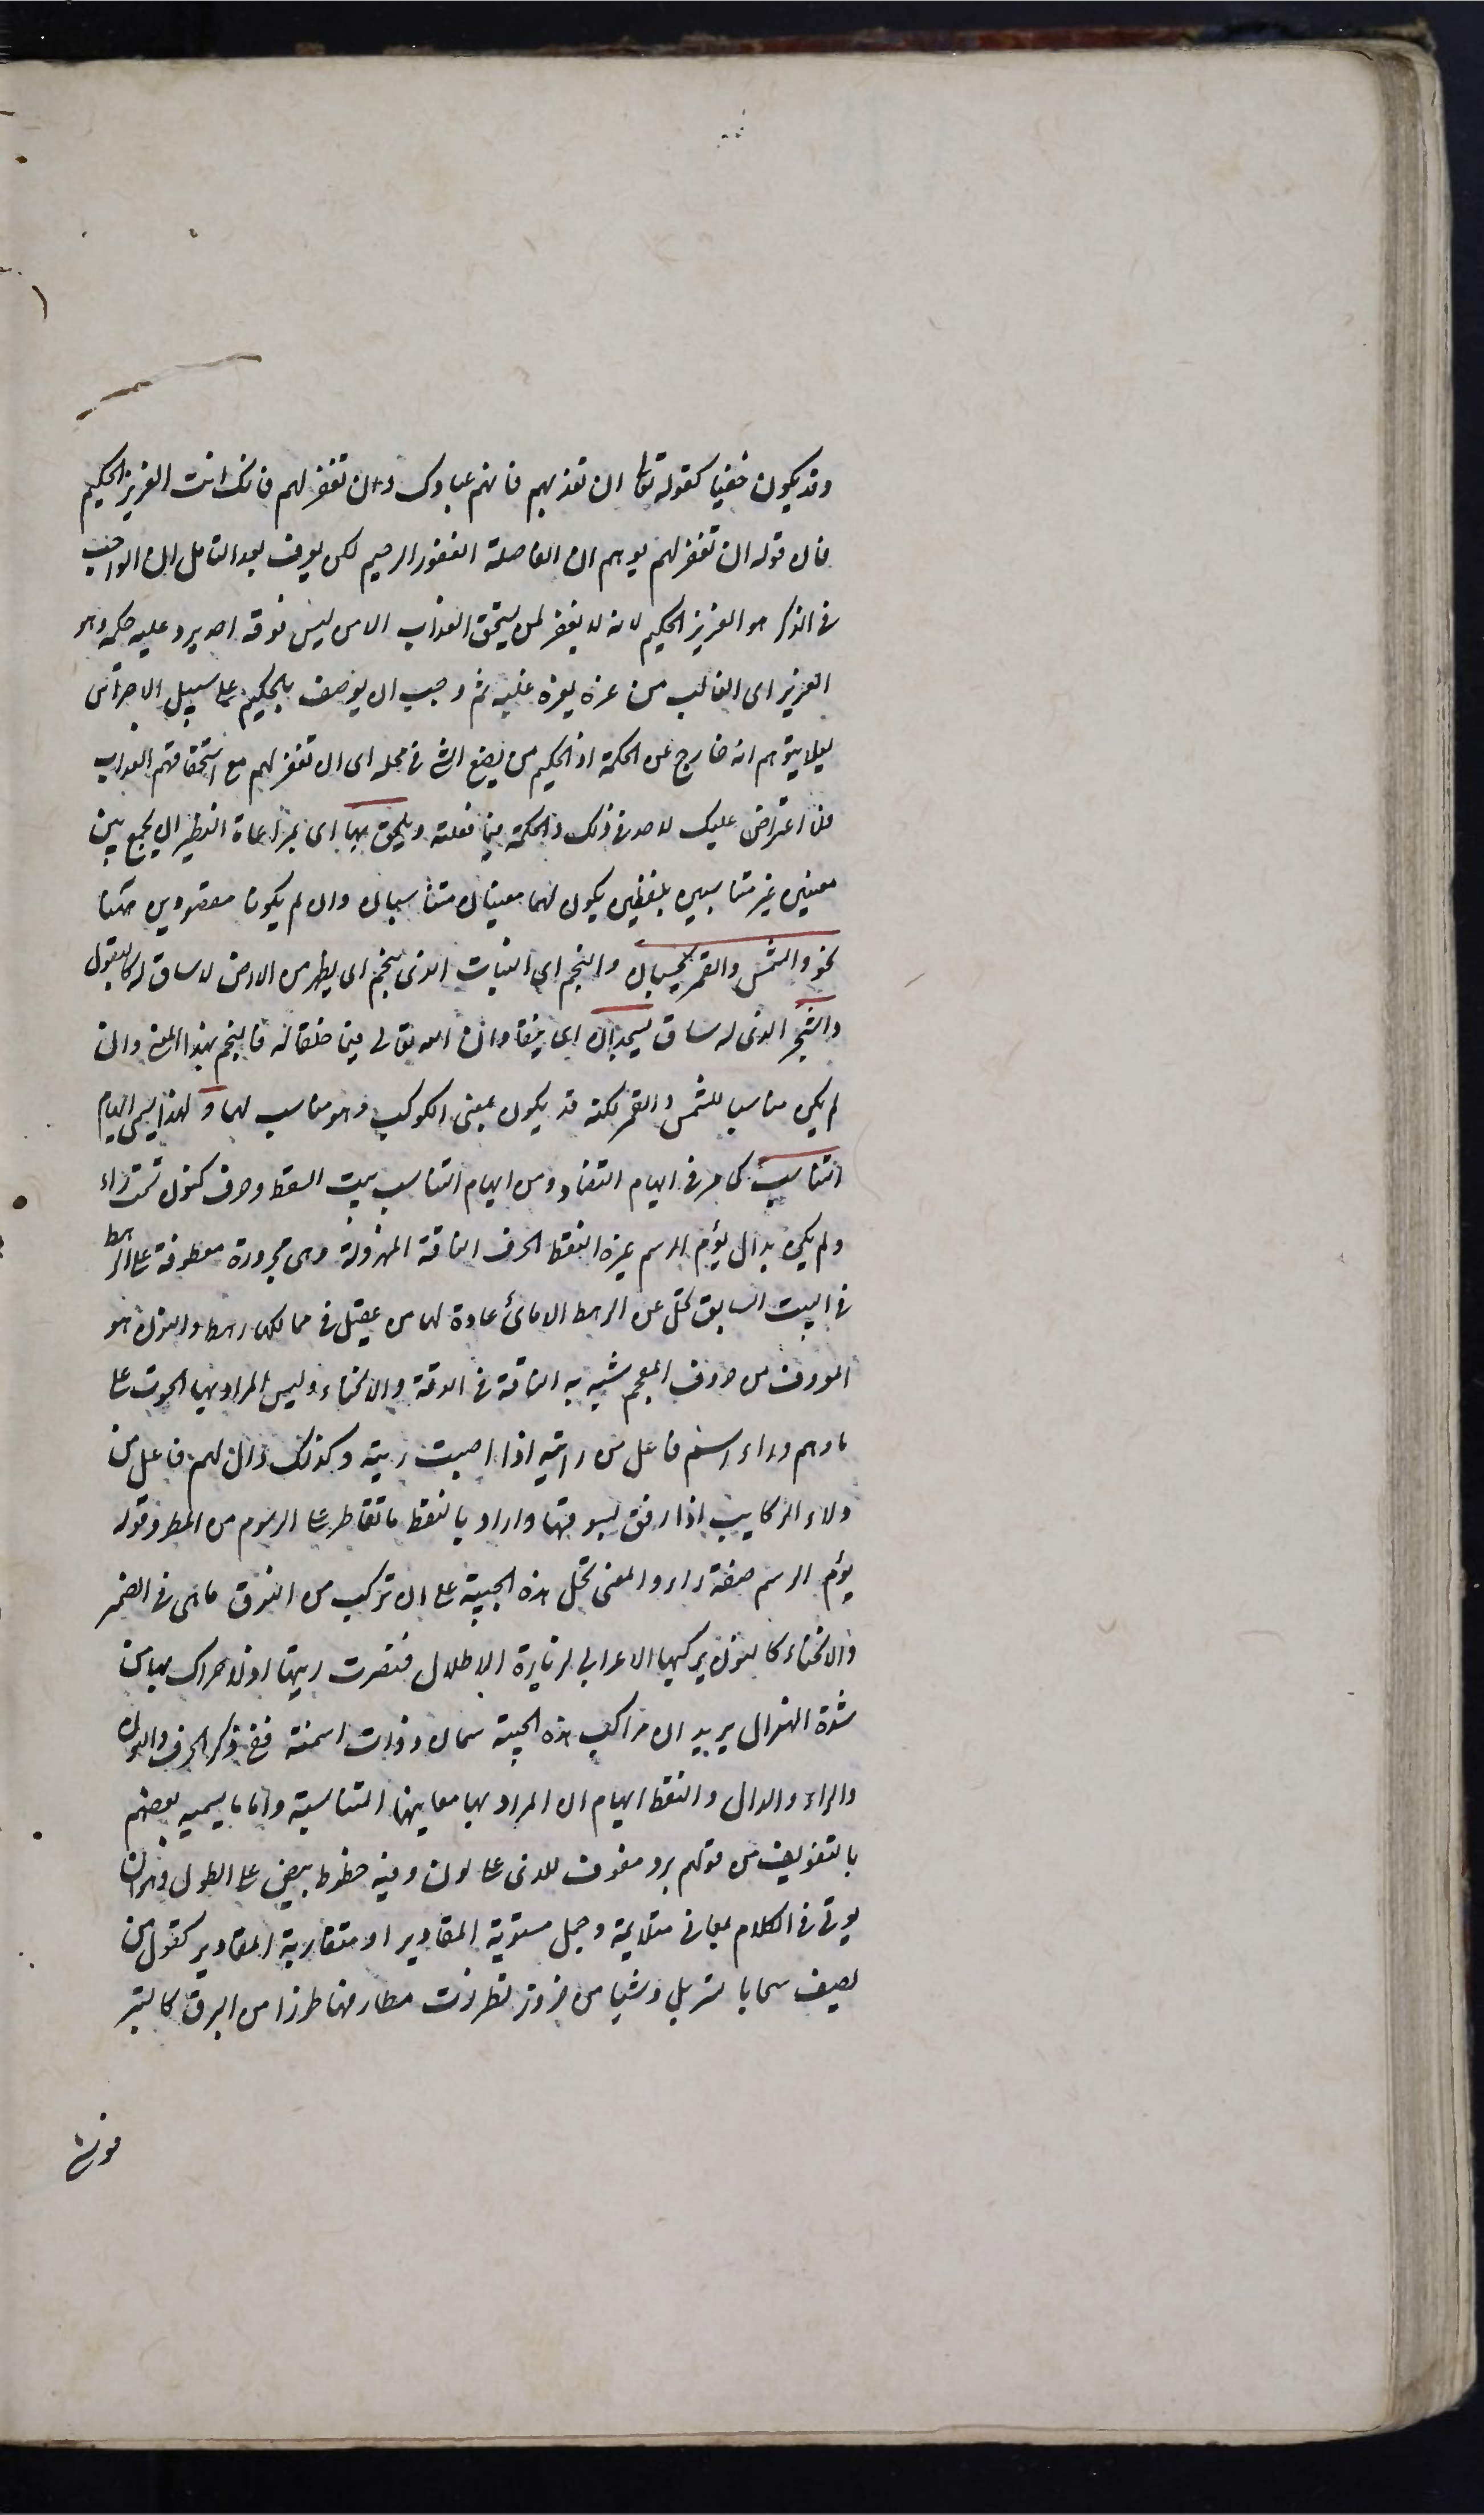 وقد يكون خفيا كقوله تعالى ان تعذبهم فانهم عبادك وان تغفر لهم فانك انت العزيز الحكيم
فان قوله ان تغفر لهم يوهم ان الفاصلة الغفور الرحيم لكن يعرف بعد التامل ان الواجب
فى الذكر هو العزيز الحكيم لانه لا يغفر لمن يستحق العذاب الا من ليس فوقه احد يرد عليه حكمه وهو
العزيز اى الغالب من عزه يعزه غلبه ثم وجب ان يوصف بالحكيم على سبيل الاحتراس
ليلا يتوهم انه خارج عن الحكمة اذ الحكيم من يضع الشئ فى محله اى ان تغفر لهم مع استحقاقهم العذاب
فلا اعتراض عليك لاحد فى ذلك والحكمة فيما فعلته ويلحق بها اى بمراعاة النظير ان يجمع بين
معنيين غير متناسبين بلفظين يكون لهما معنيان متناسبان وان لم يكونا مقصودين ههنا
نحو والشمس والقمر بحسبان والنجم اى النبات الذى ينجم اى يظهر من الارض لا ساق له كالبقول
والشجر الذى له ساق يسجدان اى ينقادان الله تعالى فيما خلقا له فالنجم بهذا المعنى وان
لم يكن مناسبا للشمس والقمر لكنه قد يكون بمعنى الكوكب وهو مناسب لهما ولهذا يسمى ايهام
التناسب كما مر فى ايهام التضاد ومن ايهام التناسب بيت السقط وحرف كنون تحت راء
ولم يكن بدال يؤم الرسم غيره النقط الحرف الناقة المهزولة وهى مجرورة معطوفة على الرهط
فى البيت السابق تجل عن الرهط الامائى غادة لها من عقيل فى ممالكها رهط والنون هو
المعروف من حروف المعجم شبه به الناقة فى الدقة والانحناء وليس المراد بها الحوت على
ما وهم وراء اسم فاعل من رايته اذا اصبت ريته وكذلك دال لهم فاعل من
دلاء الركايب اذا رفق بسوقها واراد بالنقط ما تقاطر على الرسوم من المطر وقوله
يؤم الرسم صفة راء والمعنى تجل هذه الحبيبة على ان تركب من النوق ما هى فى الضمر
والانحناء كالنون يركبها الاعرابى لزيارة الاطلال فتضرب ريتها اذ لا حراك بها من
شدة الهزال يريد ان مراكب هذه الحبيبة سمان وذوات اسنمة ففى ذكر الحرف والنون
والراء والدال والنقط ايهام ان المراد بها معانيها المتناسبة واما ما يسميه بعضهم
بالتفويف من قولهم برد مفوف للذى على لون وفيه خطوط بيض على الطول فهو ان
يوتى فى الكلام بمعانى متلايمة وجمل مستوية المقادير او متقاربة المقادير كقول من
يصف سحابا تسربل وشيا من خزوز تطرزت مطارفها طرزا من البرق كالتبر